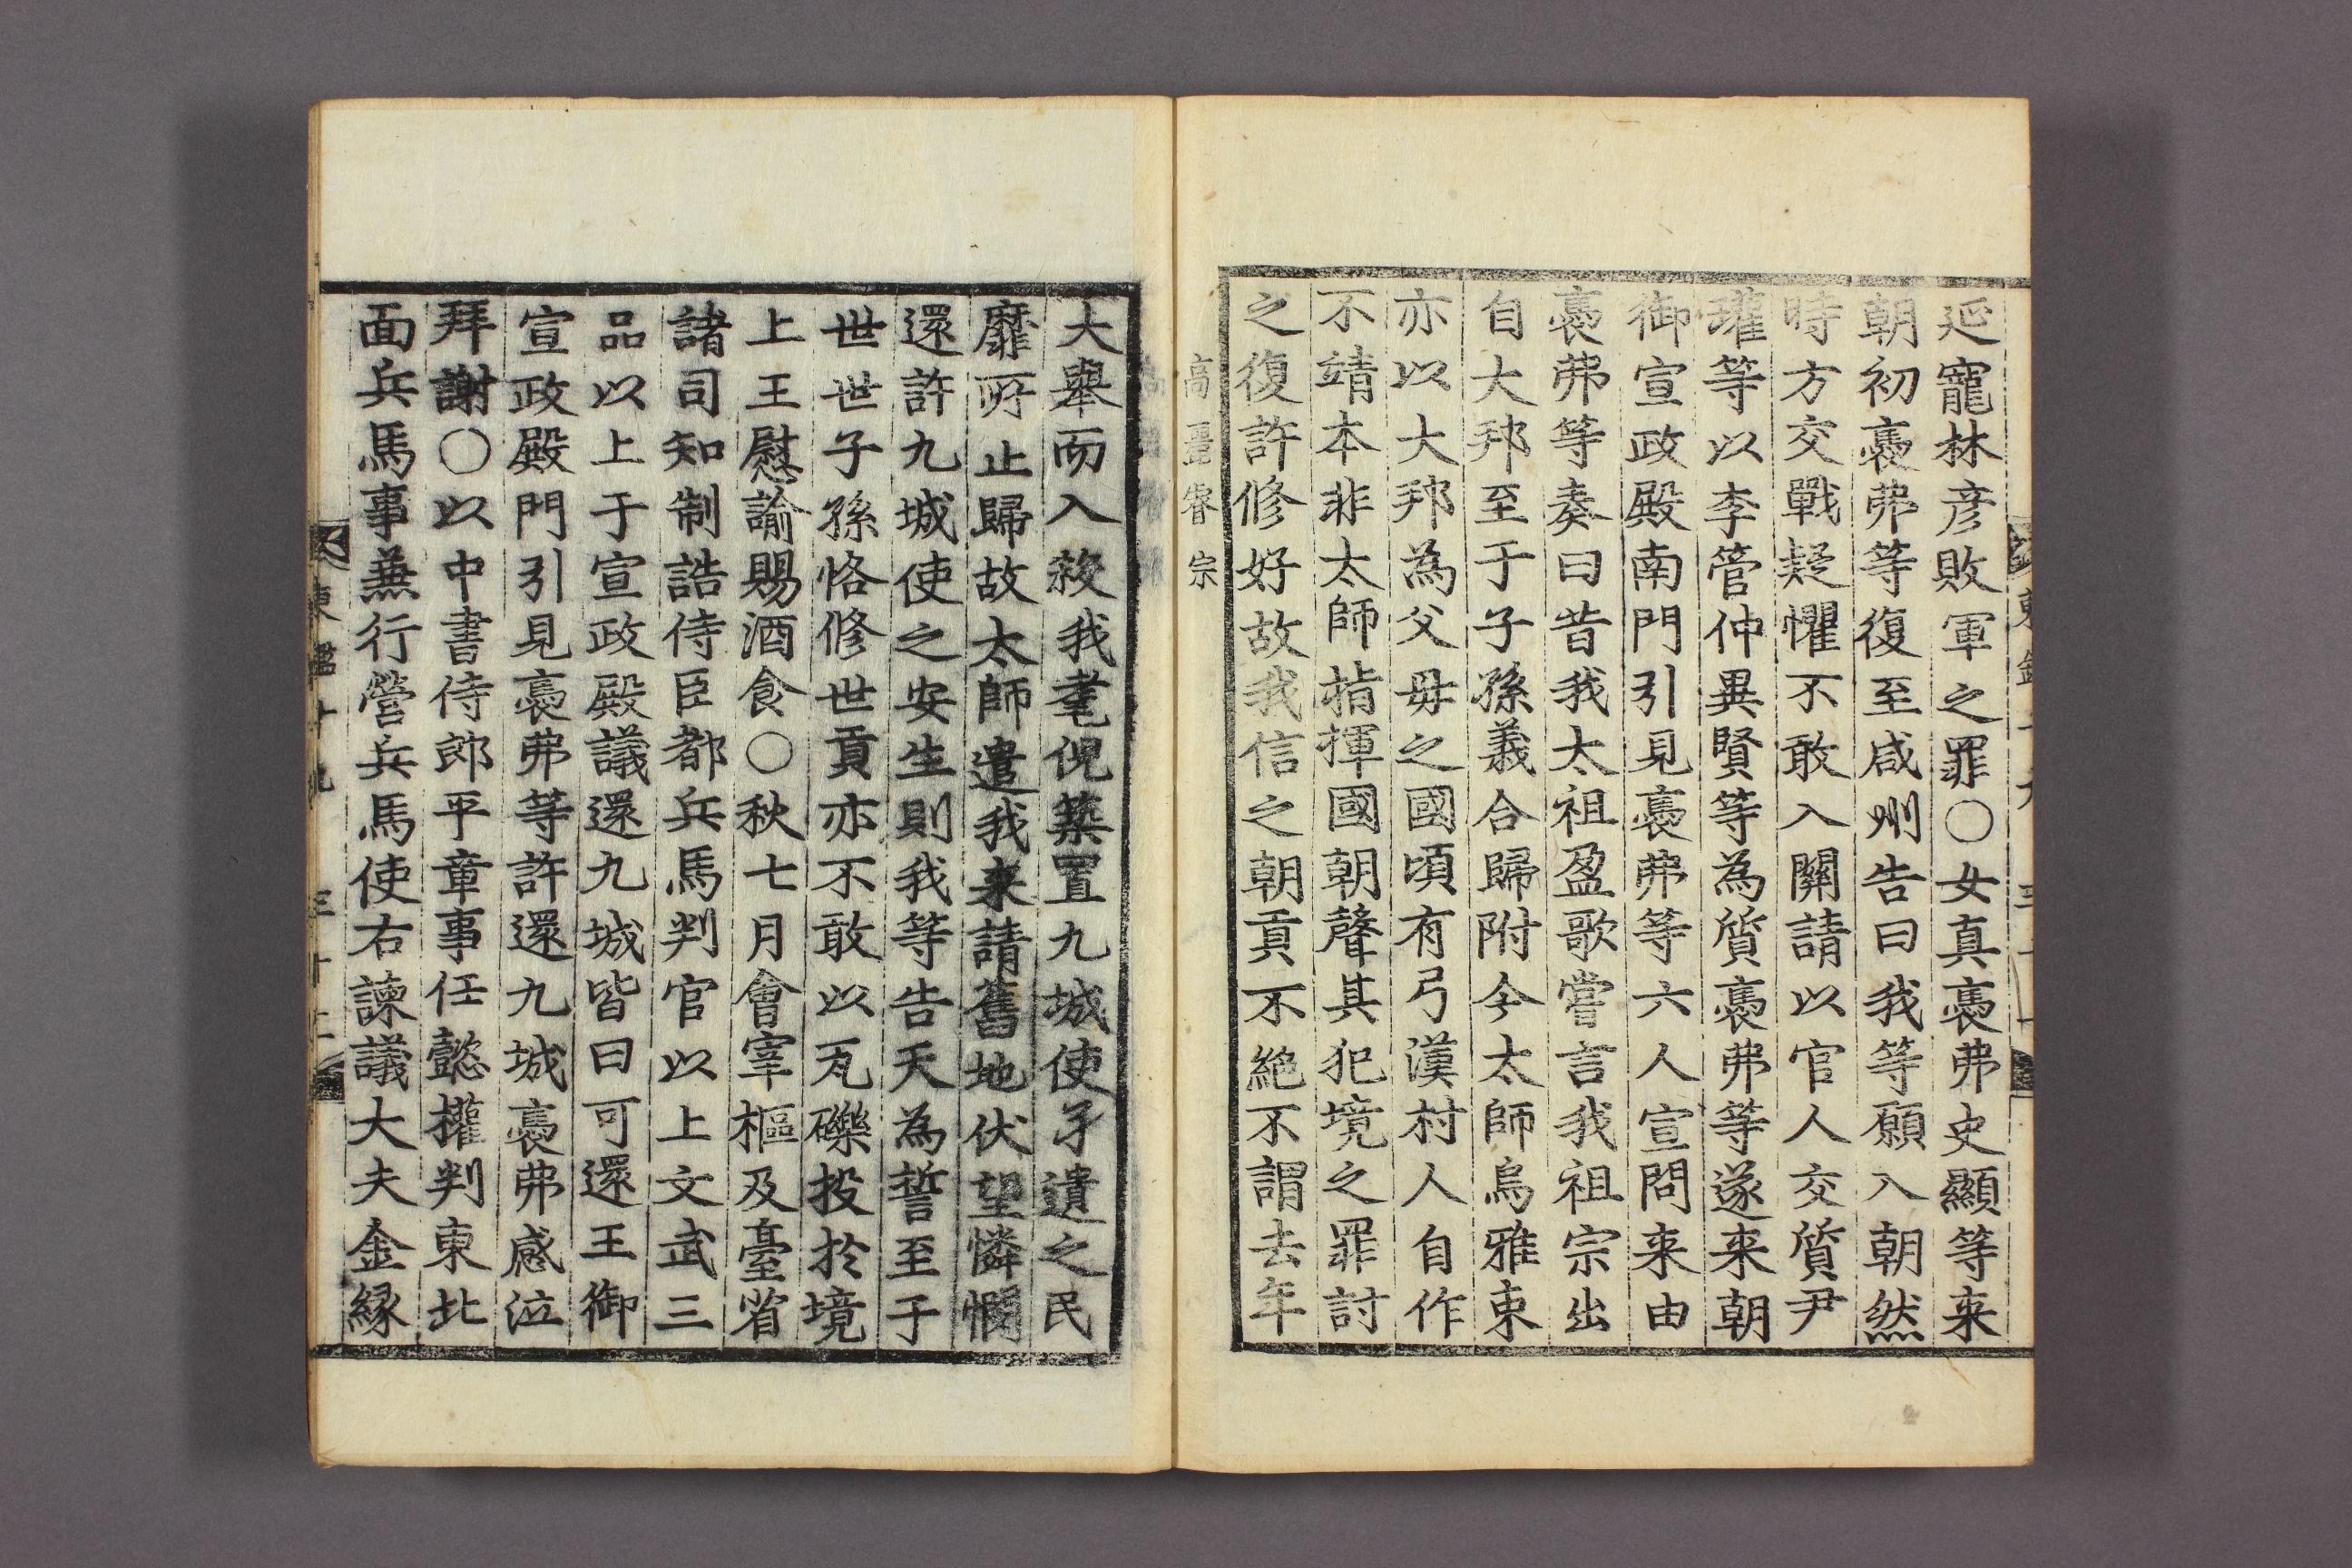 延寵林彦敗軍之罪○女真褭弗史顯等来
朝初褭弗等復至咸州告曰我等願入朝然
時方交戰疑懼不敢入關請以官人交質尹
瓘等以李管仲異賢等為質褭弗等遂来朝
御宣政殿南門引見褭弗等六人宣問来由
褭弗等奏曰昔我太祖盈歌嘗言我祖宗出
自大邦至于子孫義合歸附今太師烏雅束
亦以大邦為父母之國頃有弓漢村人自作
不靖本非太師指揮國朝聲其犯境之罪討
之復許修好故我信之朝貢不絶不謂去年
高麗睿宗
大舉而入殺我耄倪築置九城使孑遺之民
靡所止歸故太師遣我来請舊地伏望憐憫
還許九城使之安生則我等告天為誓至于
世世子孫恪修世貢亦不敢以瓦礫投於境
上王慰諭賜酒食○秋七月會宰樞及臺省
諸司知制誥侍臣都兵馬判官以上文武三
品以上于宣政殿議還九城皆曰可還王御
宣政殿門引見褭弗等許還九城褭弗感泣
拜謝○以中書侍郎平章事任懿權判東北
面兵馬事兼行營兵馬使右諫議大夫金緣
東鑑十九 三十二